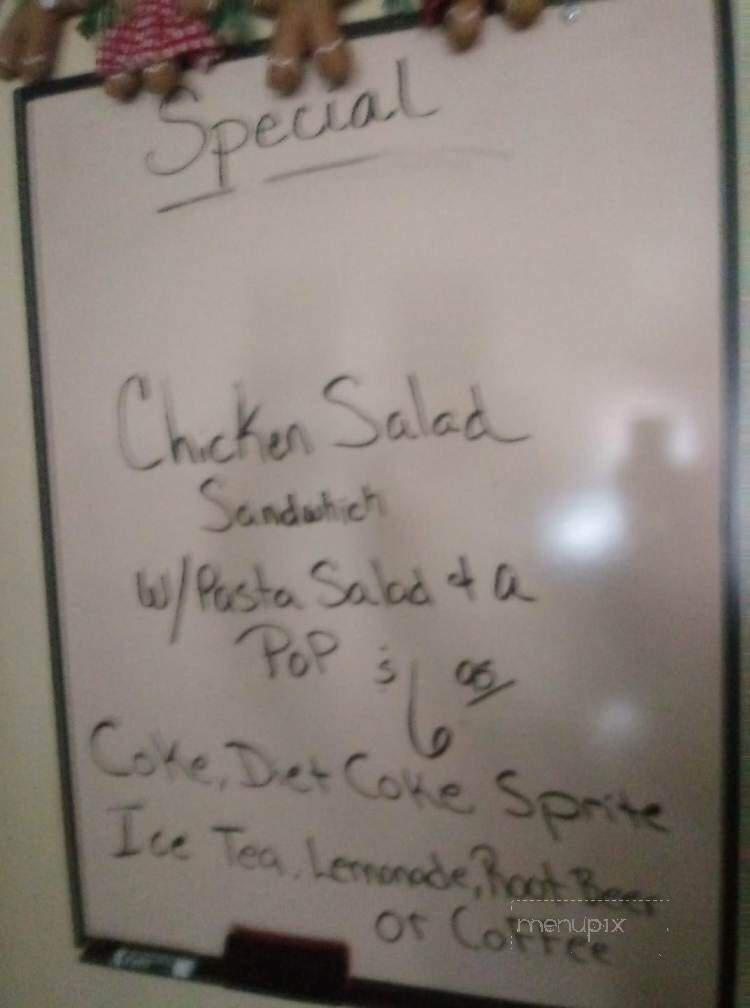 Special
Chicken Salad
Sandwhich
w/Pasta Salad & a
POP $6
Coke, Diet Coke Sprite
Ice Tea, Lemonade, Root Beer
or Coffee
menupix